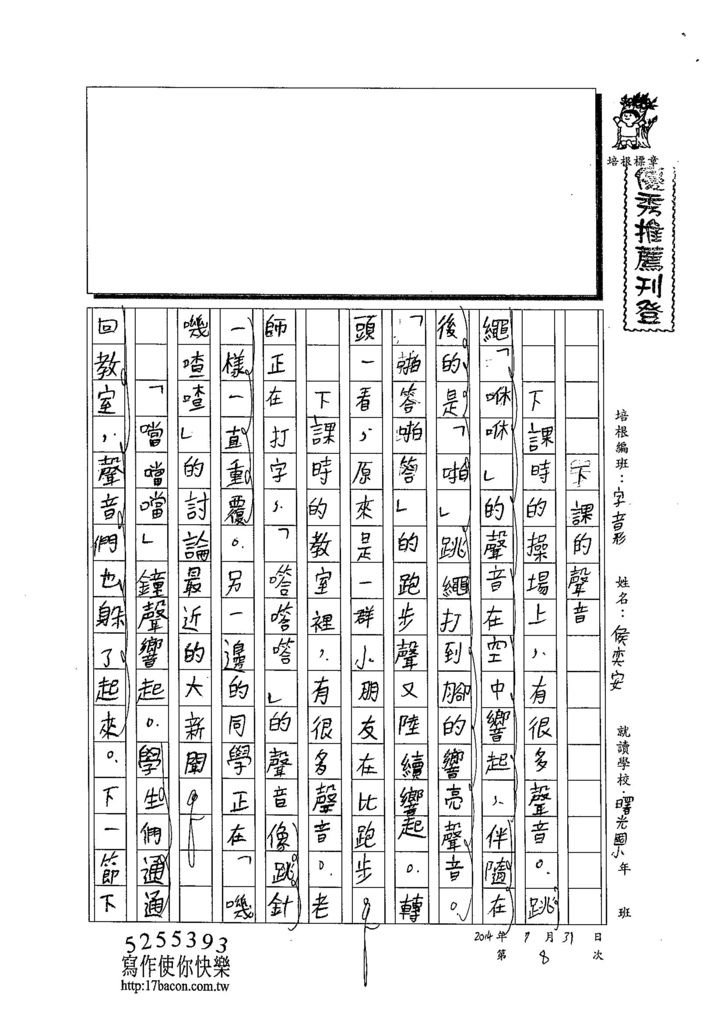 培根標章
優秀推薦刊登
培根編班：字音形 姓名：侯奕安 就讀學校：曙光國小 年 班
2014年 7月 31日
第 8 次
下課的聲音
下課時的操場上，有很多聲音。跳
繩「咻咻」的聲音在空中響起，伴隨在
後的是「啪」跳繩打到腳的響亮聲音。
「啪答啪答」的跑步聲又陸續響起。轉
頭一看，原來是一群小朋友在比跑步。
下課時的教室裡，有很多聲音。老
師正在打字，「嗒嗒嗒」的聲音像跳針
一樣一直重覆。另一邊的同學正在「嘰
嘰喳喳」的討論最近的大新聞。
「噹噹噹」鐘聲響起。學生們通通
回教室，聲音們也躲了起來。下一節下
5255393
寫作使你快樂
http:17bacon.com.tw